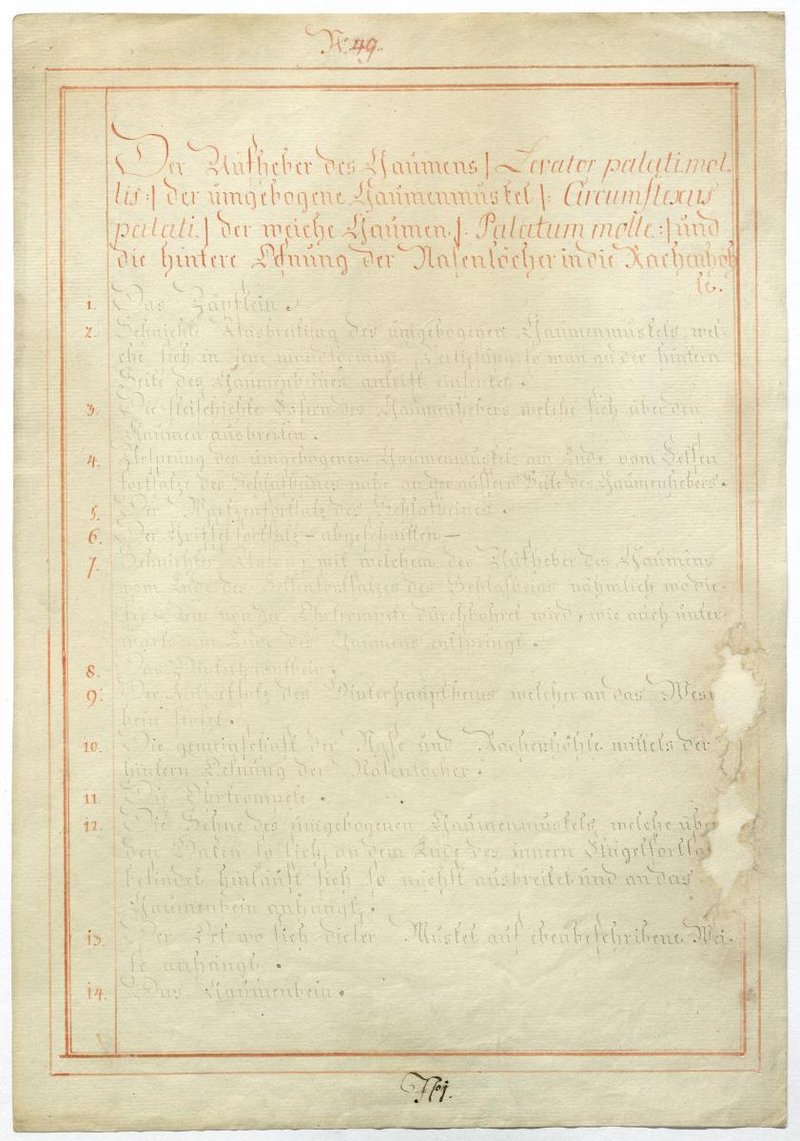 No. 49.
Der Aufheber des Gaumens |: Levator palati mol-
lis :| der umgebogene Gaumenmuskel |: Circumflexus
palati :| der weiche Gaumen |: Palatum molle :| und
die hintere Öfnung der Nasenlöcher in die Rachenhöh-
le.
1. Das Zäpflein.
2. Sehnichte Ausbreitung des umgebogenen Gaumenmuskels, wel-
che sich in jene mondförmige Vertiefung so man an der hintern
Seite des Gaumenbeines antrift
3. Die fleischichte Fasern des Gaumenhebers welche sich über den
Gaumen ausbreiten.
4. Ursprung des umgebogenen Gaumenmuskels am Ende vom Felsen
fortsatze des Schlafbeines nahe an der äussern Seite des Gaumenhebers.
5. Der Wartzenfortsatz des Schlafbeines.
6. Der Griffelfortsatz – abgeschnitten –
7. Sehnichter mit welchem der Aufheber des Gaumens
vom Ende des Felsenfortsatzes des Schlafbeins nähmlich wo die-
ses Bein von der Ohrtrompete durchbohret wird, wie auch unter-
warts am Ende des Gaumens entspringt.
8. Das Hinterhauptbein.
9. Der des Hinterhauptbeins welcher an das Wes
bein stoßt.
10. Die gemeinschaft der Nase und Rachenhöhle mittels der
hintern Öfnung der Nasenlöcher.
11. Die Ohrtrompete.
12. Die Sehne des umgebogenen Gaumenmuskels, welche übe
den Haken so sich an dem Ende des innern Flügelfortsa
befindet hinlauft sich so nächst ausbreitet und an das
Gaumenbein anhangt.
13. Der Ort wo sich dieser Muskel auf ebenbeschribene Wei-
se anhängt.
14. Das Gaumenbein.
No. 1.